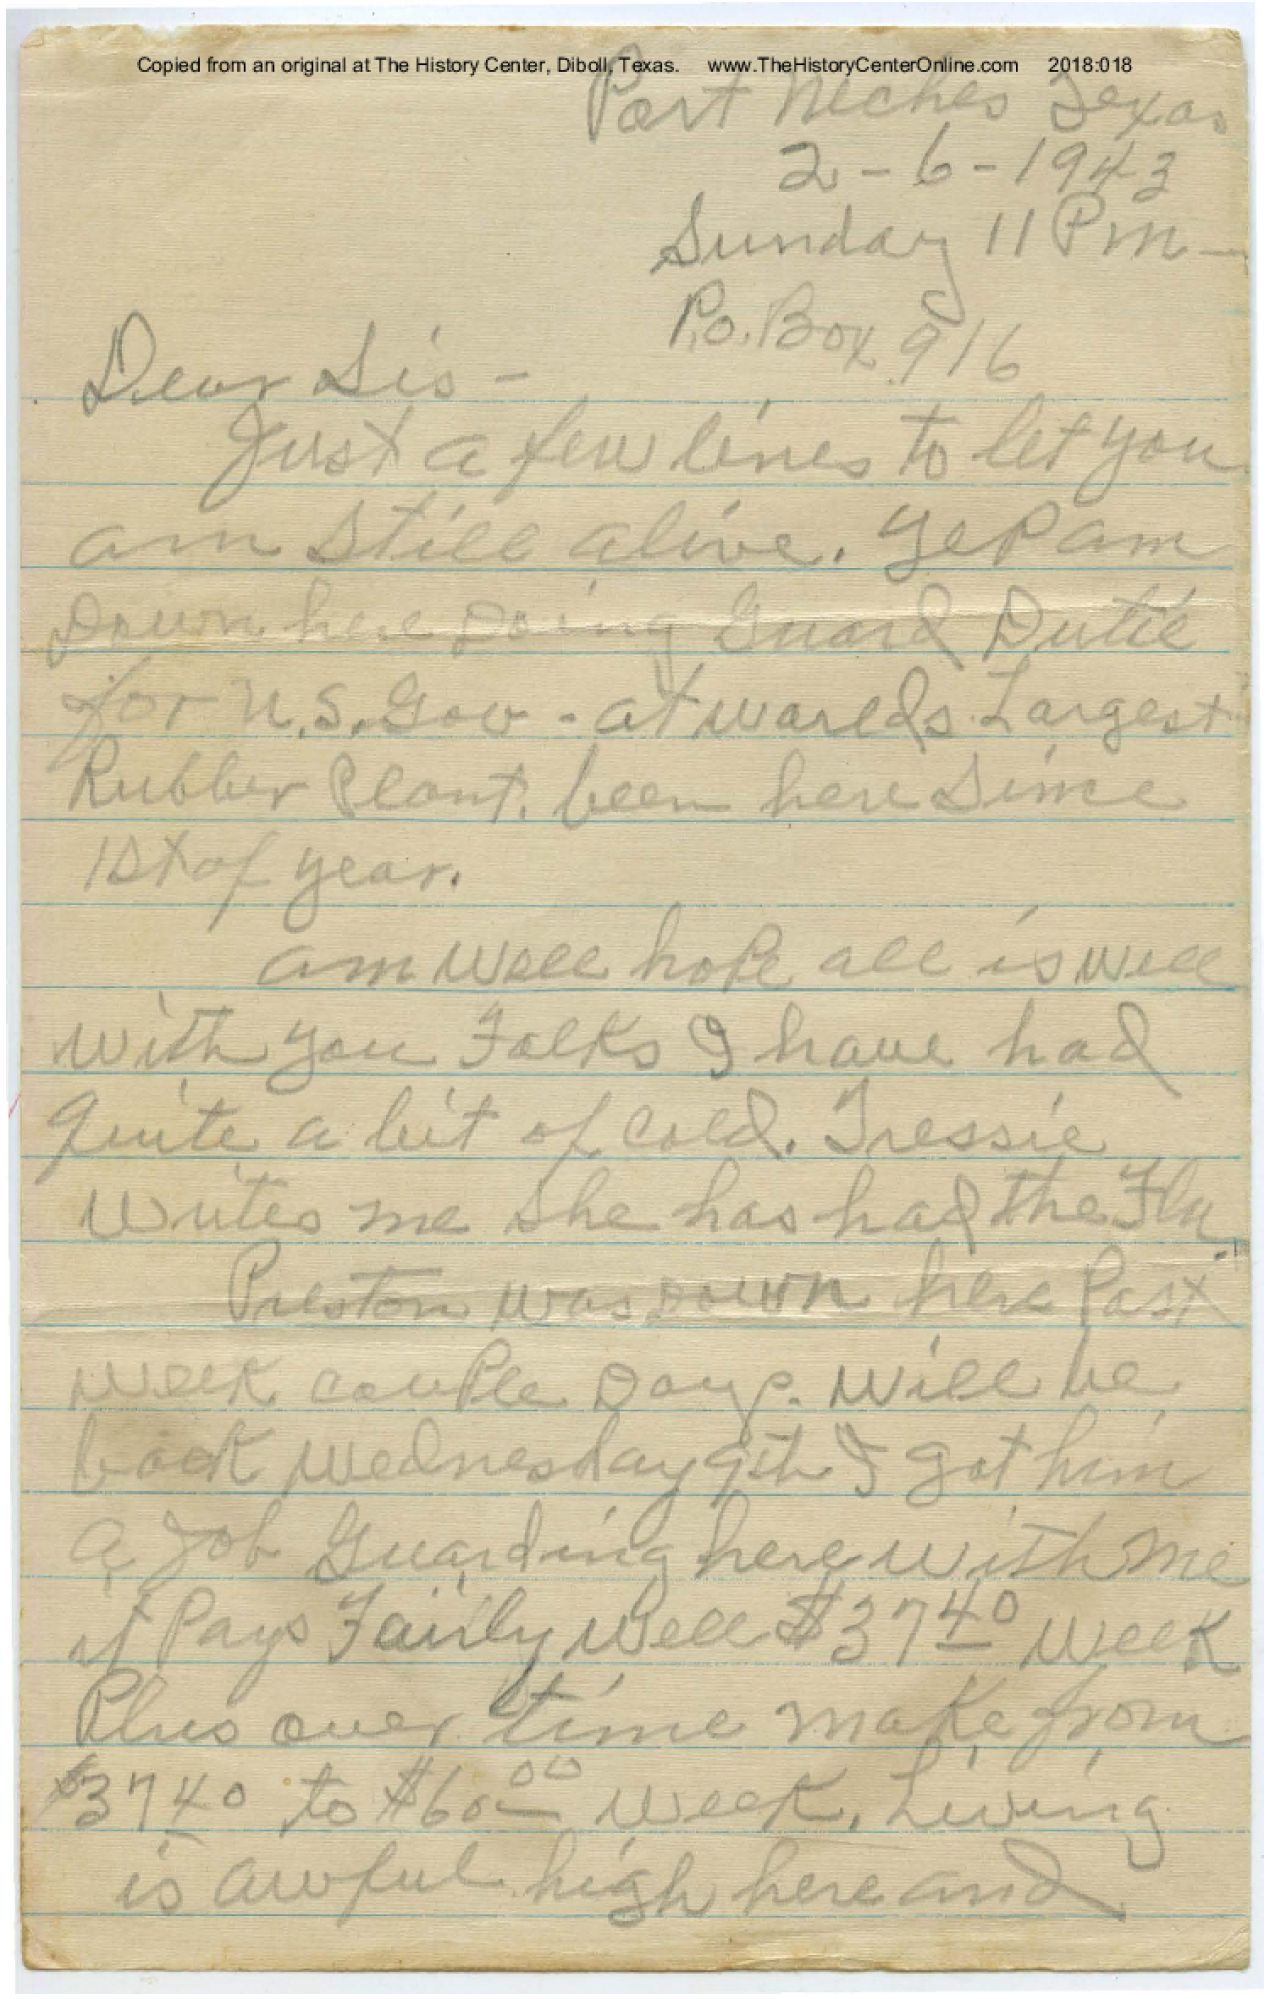 Copied from an original at The History Center, Diboll, Texas. www.TheHistoryCenterOnline.com 2018:018
Port Neches Texas
2-6-1943
Sunday 11 Pm-
P.o. Box 916
Dear Sis -
Just a few lines to let you
am still alive. Yep am
Down here Doing Guard Dutie
for U.S. Gov - at warlds Largest
Rubber Plant. been here Since
1st of year.
am well hope all is well
with you Folks I have had
quite a bit of cold. Tressie
writes me she has had the Flu.
Preston was Down here Past
week couple Days. will be
back wednesday 9th I got him
a Job Guarding here with me
it Pays Fairly well $37 40 week
Plus over time make from
$37 40 to $60 00 week. Living
is awful high here and